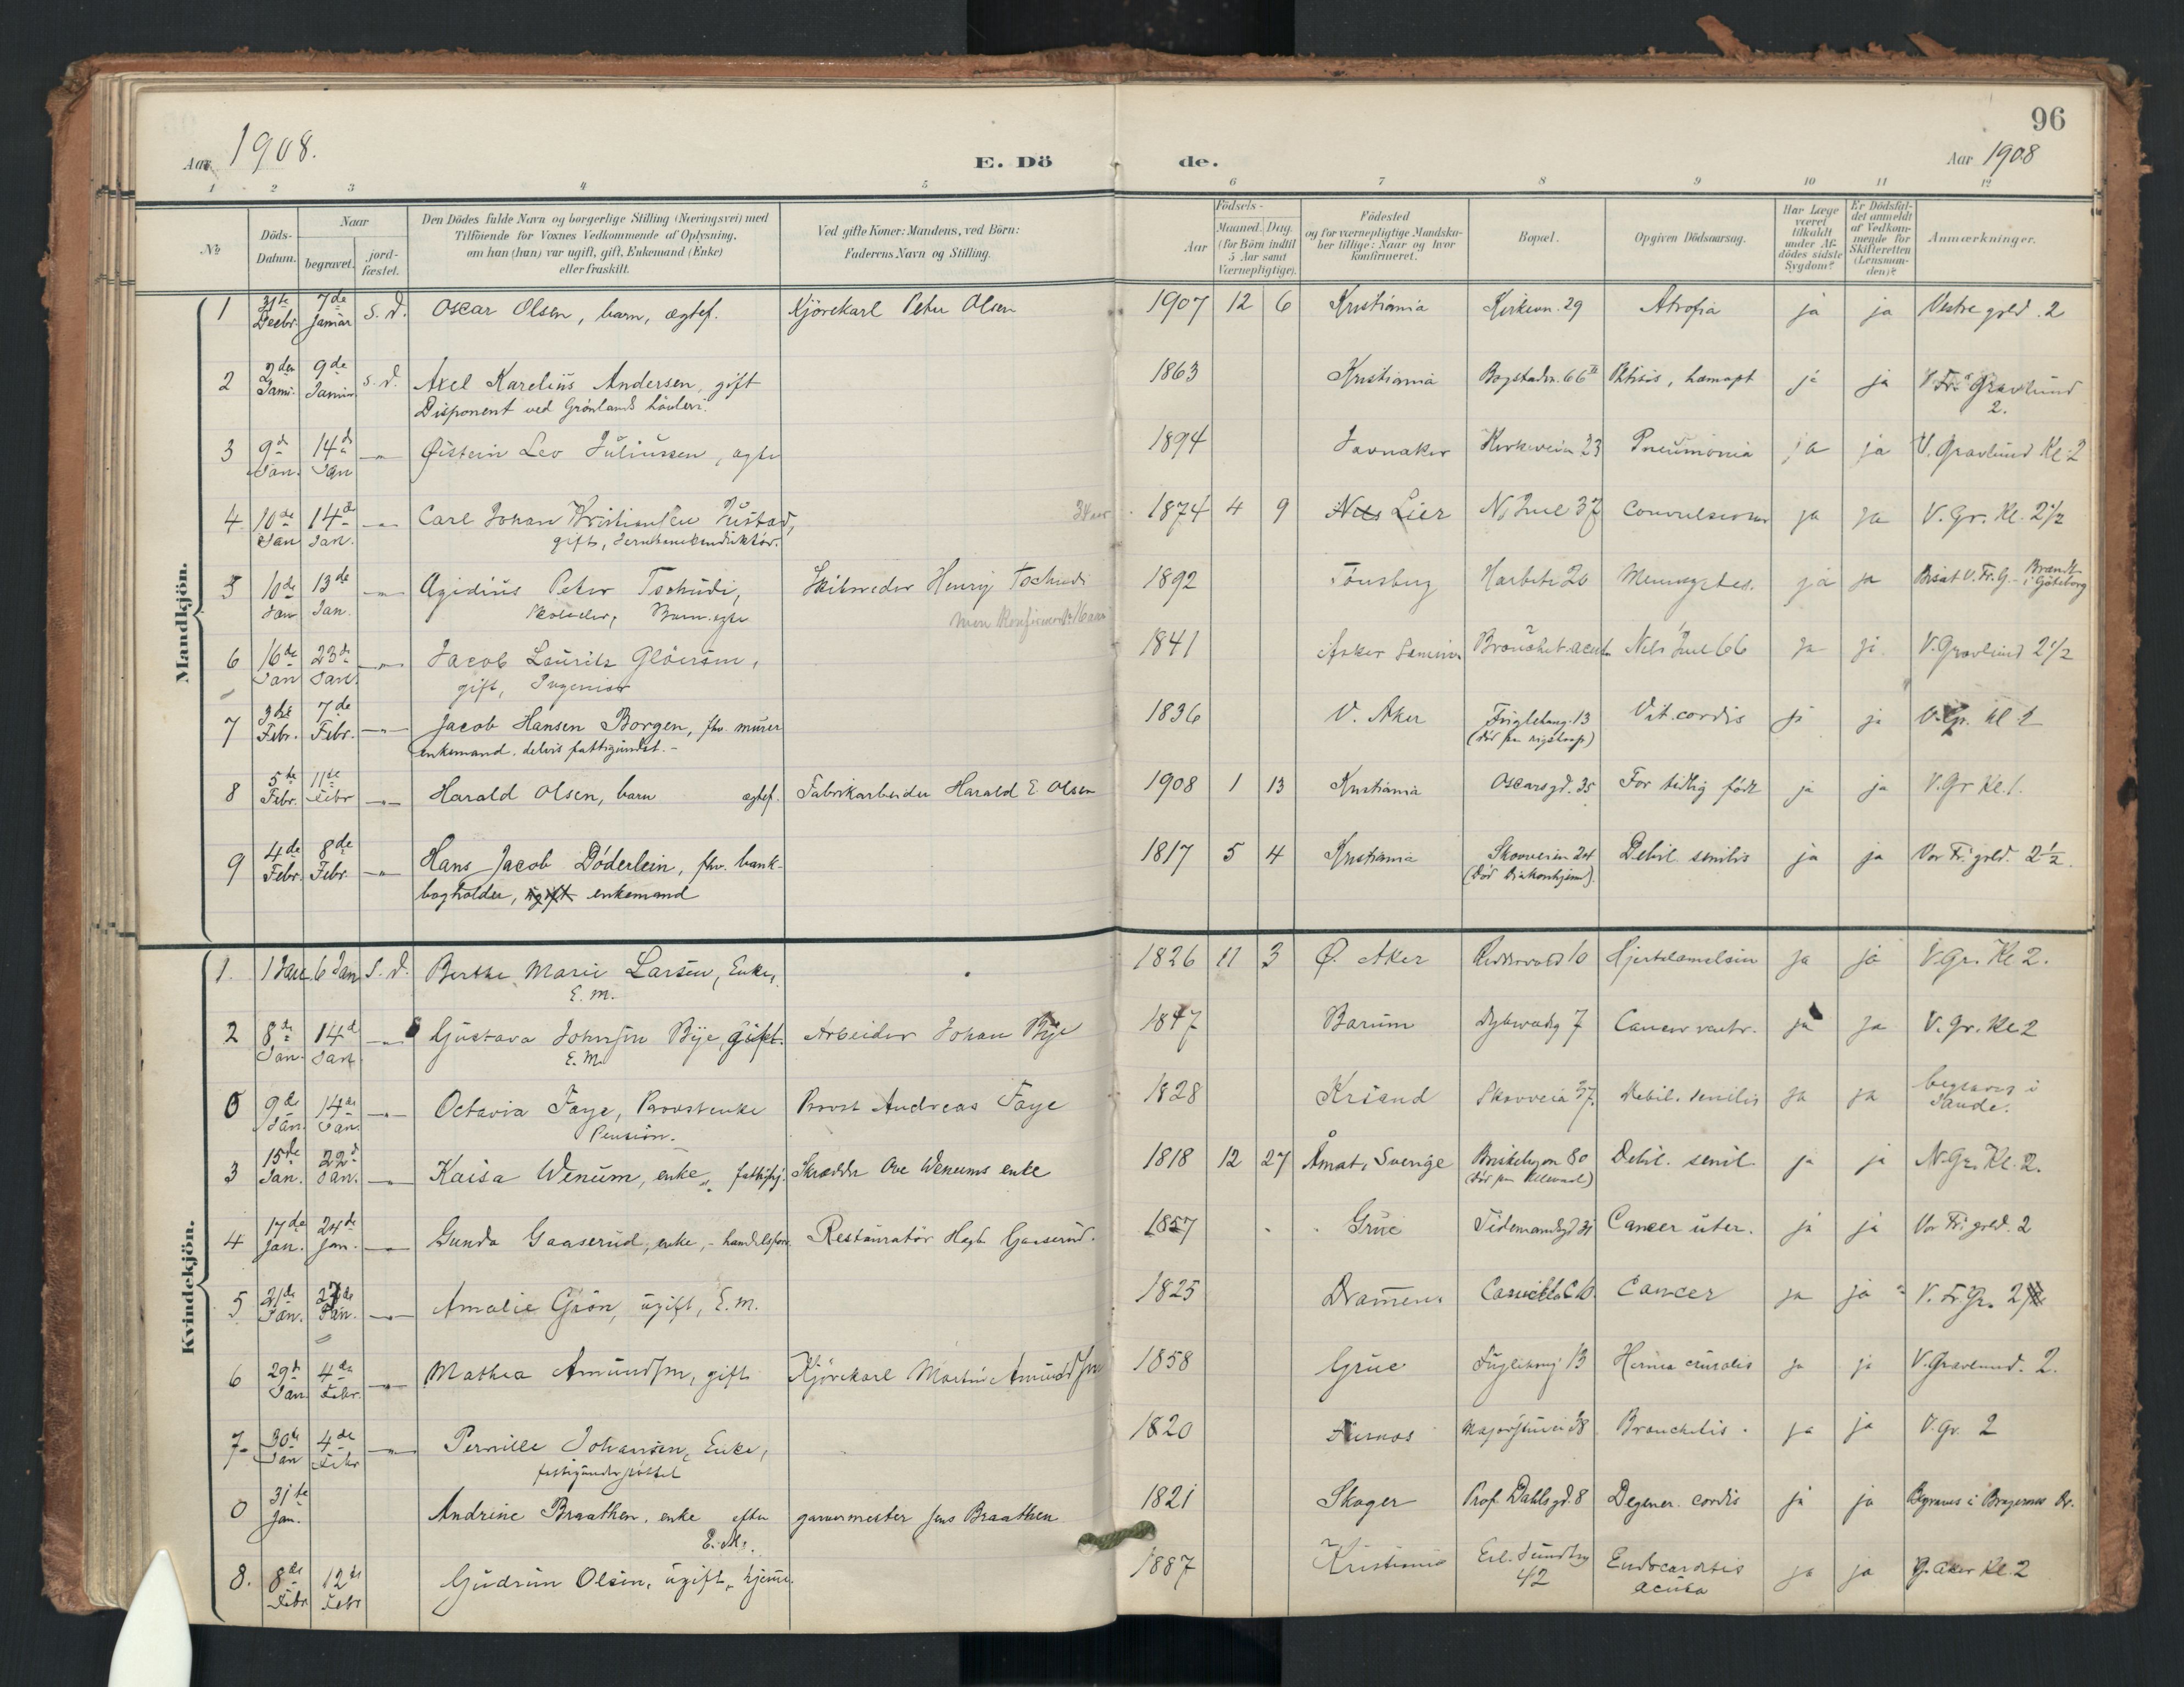 96
Aar 1908.
E. Dö de.
Aar 1908
1 2 3 4 5 6 7 8 9 10 11 12
No.
Döds-Datum.
Naar
begravet.
jord-fæstet.
Den Dödes fulde Navn og borgerlige Stilling (Næringsvei) med
Tilföiende for Voxnes Vedkommende af Oplysning,
om han (hun) var ugift, gift, Enkemand (Enke)
eller fraskilt.
Ved gifte Koner: Mandens, ved Börn:
Faderens Navn og Stilling.
Födsels-
Aar
Maaned. Dag.
(for Börn indtil
5 Aar samt
Værnepligtige).
Födested
og for værnepligtige Mandska-
ber tillige: Naar og hvor
konfirmeret.
Bopæl.
Opgiven Dödsaarsag.
Har Læge
været
tilkaldt
under Af-
dödes sidste
Sygdom?
Er Dödsfal-
det anmeldt
af Vedkom-
mende for
Skifteretten
(Lensman-
den)?
Anmærkninger.
Mandkjön.
1 31te Decbr. 7de Januar s. d. Oscar Olsen, barn, ægtef. Kjörekarl Peter Olsen 1907 12 6 Kristiania Kirkevn. 29 Atrofia ja ja Vestre gvld. 2
2 2den Janu. 9de Januar s. d. Axel Karelius Andersen, gift 1863 Kristiania Bogstadvn. 66 II Phtisis, hæmopt ja ja V. Fr. Gravlund
Disponent ved Grönlands hövleri. 2.
3 9de Jan. 14de Jan -"- Øistein Leo Juliussen, ægte 1894 Jevnaker Kirkeveien 23 Pneumonia ja ja V. Gravlund Kl. 2
4 10de Jan 14de Jan. -"- Carl Johan Kristiansen Rustad, 34 aar 1874 4 9 Lier N. Juel 37 Convulsioner ja ja V. Gr. Kl. 2 1/2
gift, Jernbanekonduktör.
5 10de Jan 13de Jan. -"- Agidius Peter Tschudi, Skibsreder Henry Tschudi 1892 Tönsberg Harbitz 20 ja ja Bisat V. Fr. G. - Brændt i Göteborg
Skoleelev, Barn. ægte
6 16de Jan 23de Jan. -"- Jacob Lauritz Glöersen, 1841 Asker Bronchit. acut. Nels Juel 66 ja ja V. Gravlund 2 1/2
gift, Ingeniör
7 3die Febr. 7de Febr. -"- Jacob Hansen Borgen, fhv. murer 1836 V. Aker Fuglehaug. 13 Vit. cordis ja ja V. Gr. Kl 1
enkemand. delvis fattigundst. - (död paa rigshosp)
8 5te Febr. 11te Febr -"- Harald Olsen, barn ægtef. Fabrikarbeider Harald E. Olsen 1908 1 13 Kristiania Oscarsgd. 35 For tidlig född ja ja V. Gr Kl. 1.
9 4de Febr. 8de Febr. -"- Hans Jacob Döderlein, fhv. bank- 1817 5 4 Kristiania Skovveien 24 Debil. senilis ja ja Vor Fr. gvld. 2 1/2.
bogholder, ugift enkemand (död Diakonhjem).
Kvindekjön.
1. 1 Jan. 6 Jan s. d. Berthe Marie Larsen, Enke, 1826 11 3 Ø. Aker Riddervold 10 Hjertelamelsen ja ja V. Gr. Kl 2.
E. M.
2 8de Jan. 14de Jan -"- Gustava Johnsen Bye, gift. Arbeider Johan Bye 1847 Bærum Dybwadsg 7 Cancer ventr. ja ja V. Gr. Kl 2
E. M.
0 9de Jan. 14de Jan. -"- Octavia Faye, Provstenke Provst Andreas Faye 1828 Krsand Skovveien 37. Debil. senilis ja ja begraves i Sande.
Pension.
3 15de Jan. 22de Jan. -"- Kaisa Wenum, enke, fattighj. Skrædder Ove Wenums enke 1818 12 27 Åmat, Sverige Briskebyvn 80 Debil. senil. ja ja N. Gr. Kl. 2.
4 17de Jan. 24de Jan. -"- Gunda Gaaserud, enke, - handelsforr. Restauratör Hagb. Gaaserud. 1857 Grue Tidemandsgd 31 Cancer uter. ja ja Vor Fr. gvld. 2
5 21de Jan. 27de Jan. -"- Amalie Grön, ugift, E. M. 1825 Drammen Camilla C 10 Cancer ja ja V. Fr. Gr. 2
6 29de Jan 4de Febr. -"- Mathea Amundsen, gift Kjörekarl Martin Amundsen 1858 Grue Fuglehaug 13 Hernia cruralis ja ja V. Gravlund. 2.
7. 30de Jan 4de Febr -"- Pernille Johansen, Enke, 1820 Aurnos Majorstuvei 38 Bronchitis. ja ja V. Gr. 2
fattigunderstöttet
0 31te Jan. Andrine Braathen. enke efter garvermester Jens Braathen 1821 Skoger Prof. Dahlsgd. 8 Degener. cordis ja ja Begraves i Bragernes
E. M.
8. 8de Febr 12te Febr Gudrun Olsen, ugift, hjemme. 1887 Kristiania Eil. Sundtsg 42 Endocarditis acuta ja ja Ø. Aker Kl. 2